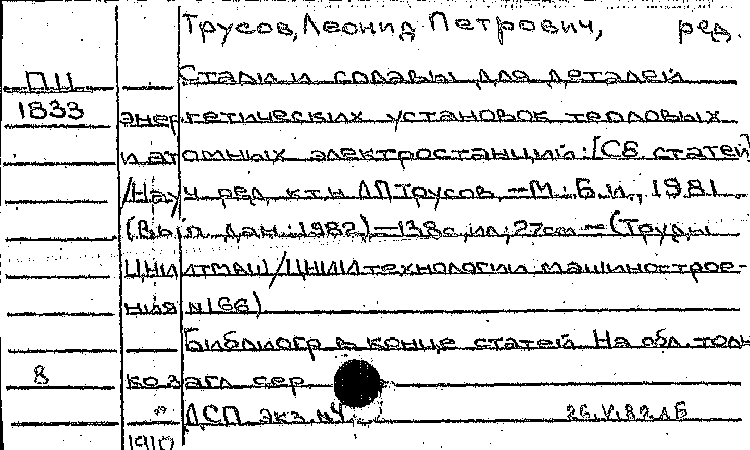 Трусов, Леонид Петрович, ред.
П11 Стали и сплавы для деталей
1833 энергетических установок тепловых
и атомных электростанций: [Сб статей
/Науч ред. к.т.н Л.П.Трусов. -М.: Б.и., 1981.
(Вып. дан.: 1982) -138с, ил; 27см - (Труды
ЦНИИТМАШ/ЦНИИ технологии машинострое-
ния N166)
Библиогр в конце статей На обл. толь
8 ко загл сер
" ДСП экз. №4 26.V.82 ЛБ
1910